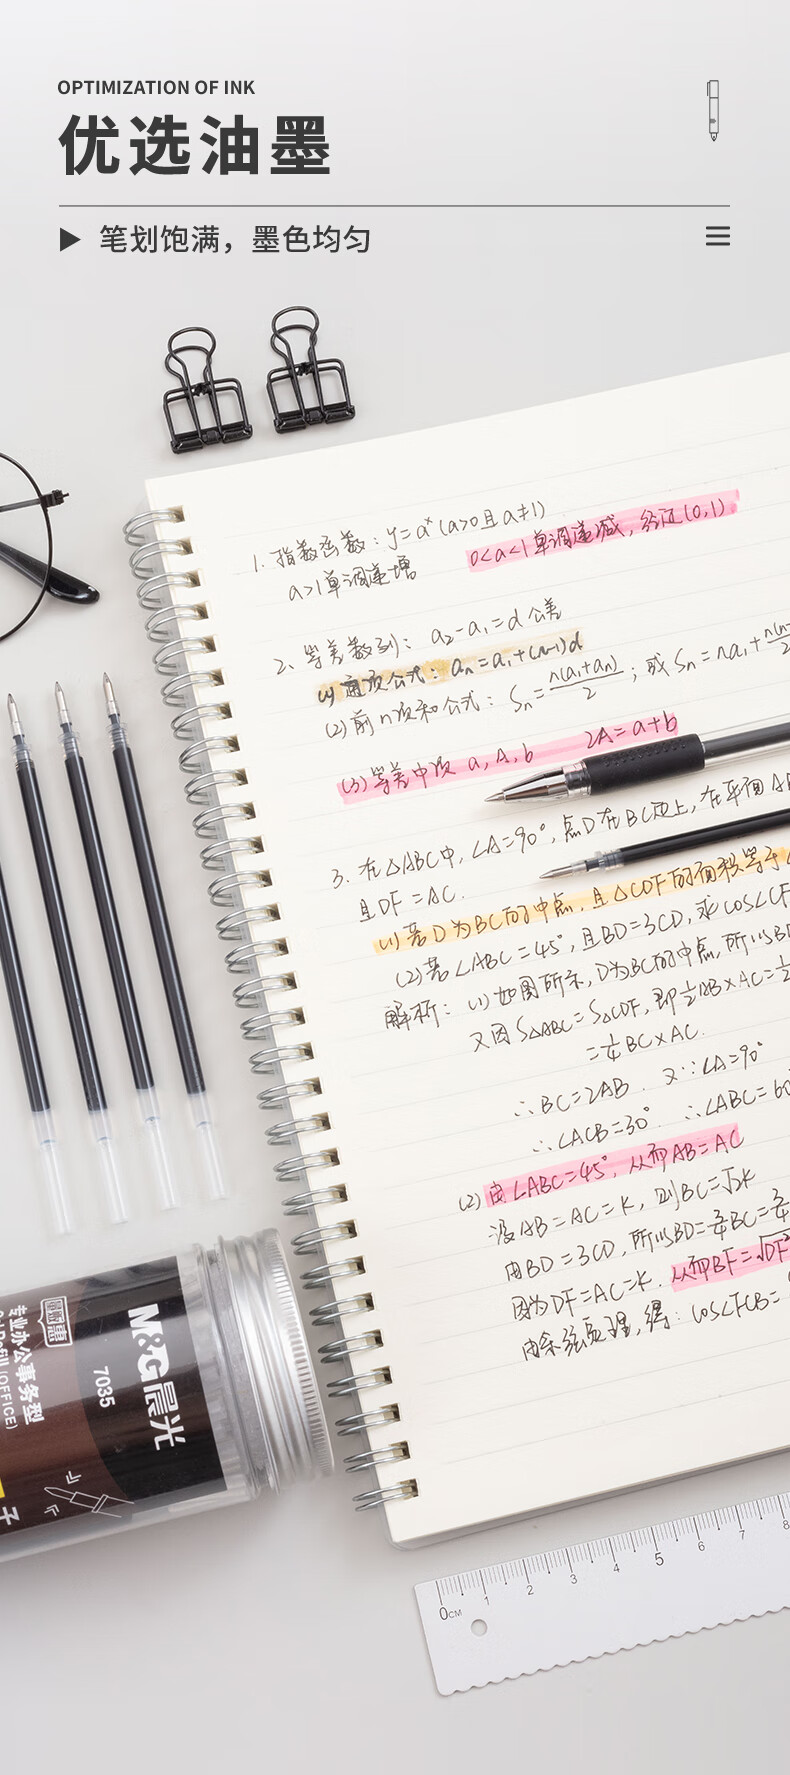 OPTIMIZATION OF INK
优选油墨
笔划饱满，墨色均匀
1. 指数函数：y=aˣ (a>0且a≠1)
a>1单调递增 0<a<1单调递减，经过(0,1)
2、等差数列： a₂-a₁=d 公差
(1) 通项公式：aₙ=a₁+(n-1)d
(2) 前n项和公式：Sₙ=n(a₁+aₙ)/2；或Sₙ=na₁+
(3) 等差中项 a, A, b 2A=a+b
3. 在△ABC中，∠A=90°，点D在BC边上，在平面AB
且DF=AC.
(1) 若D为BC的中点，且△CDF的面积等于
(2) 若∠ABC=45°，且BD=3CD，求cos∠CF
解析：(1) 如图所示，D为BC的中点，所以BD
又因S△ABC=S△CDF，即½AB×AC=½
=¼BC×AC.
∴BC=2AB. 又∵∠A=90°
∴∠ACB=30° ∴∠ABC=60
(2) 由∠ABC=45°，从而AB=AC
设AB=AC=k，则BC=√2k
由BD=3CD，所以BD=¾BC=¾
因为DF=AC=k. 从而BF=√DF²
由余弦定理，得：cos∠FCB=
M&G晨光
7035
晨新惠
专业办公事务型
Refill (OFFICE)
子
0CM 1 2 3 4 5 6 7 8